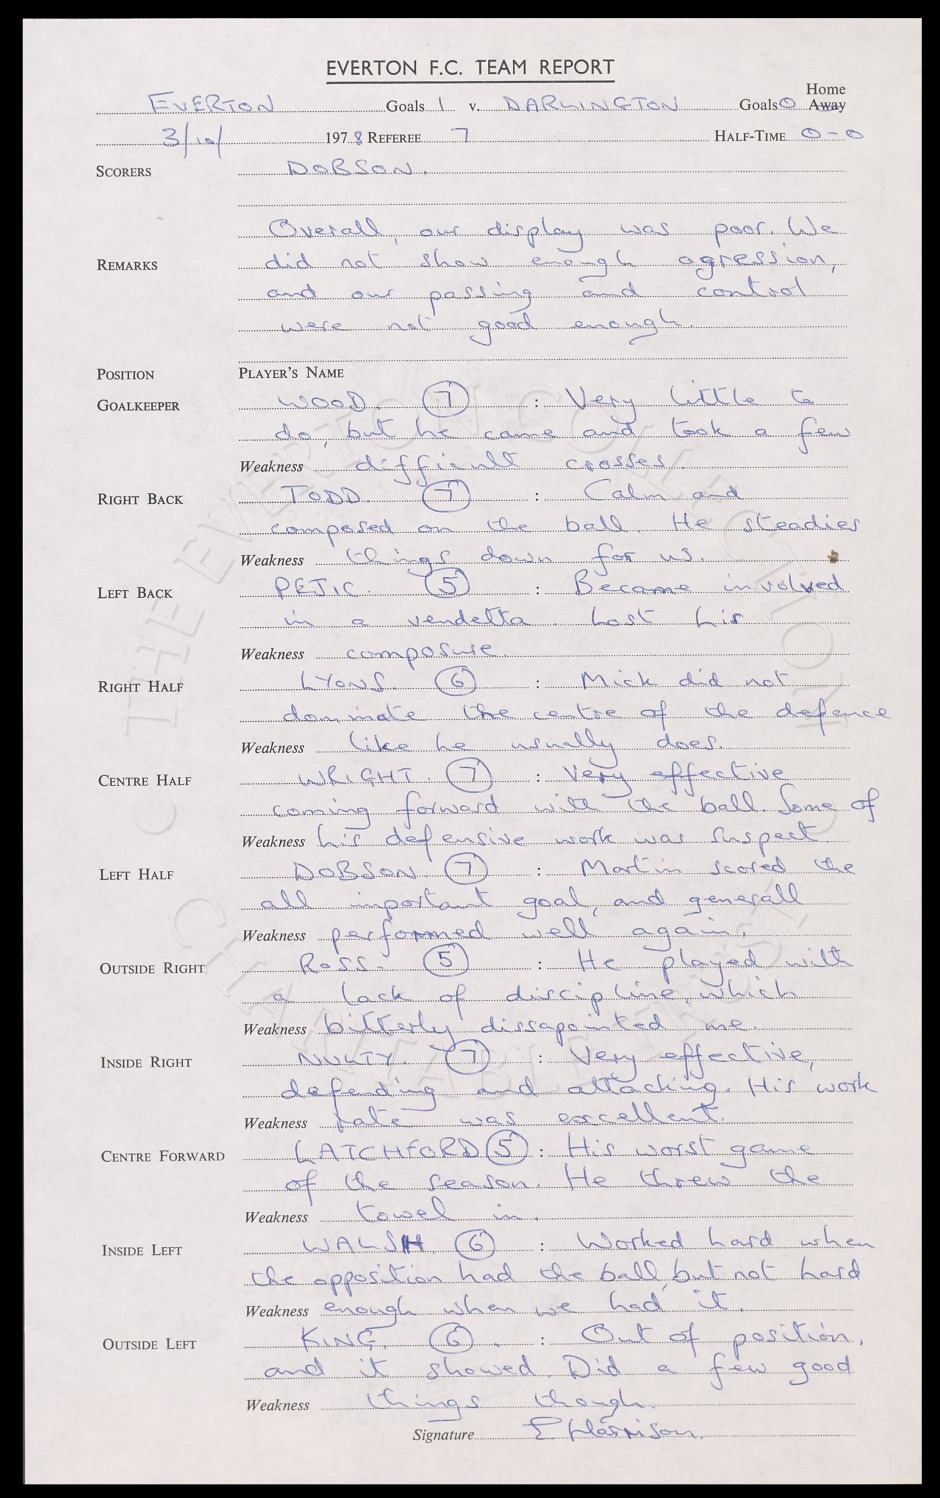 EVERTON F.C. TEAM REPORT
Home
EVERTON Goals 1 v. DARLINGTON Goals 0 Away
3/10/ 1978 REFEREE 7 HALF-TIME 0-0
SCORERS DOBSON.
Overall, our display was poor. We
REMARKS did not show enough agression,
and our passing and control
were not good enough.
POSITION PLAYER'S NAME
GOALKEEPER WOOD. 7 : Very little to
do, but he came and took a few
Weakness difficult crosses.
RIGHT BACK TODD. 7 : Calm and
composed on the ball. He steadies
Weakness things down for us.
LEFT BACK PEJIC. 5 : Became involved
in a vendetta. Lost his
Weakness composure.
RIGHT HALF LYONS. 6 : Mick did not
dominate the centre of the defence
Weakness like he usually does.
CENTRE HALF WRIGHT. 7 : Very effective
coming forward with the ball. Some of
Weakness his defensive work was suspect.
LEFT HALF DOBSON 7 : Martin scored the
all important goal, and generall
Weakness performed well again.
OUTSIDE RIGHT ROSS. 5 : He played with
a lack of discipline, which
Weakness bitterly dissapointed me.
INSIDE RIGHT NULTY. 7 : Very effective,
defending and attacking. His work
Weakness rate was excellent.
CENTRE FORWARD LATCHFORD 5 : His worst game
of the season. He threw the
Weakness towel in.
INSIDE LEFT WALSH 6 : Worked hard when
the opposition had the ball, but not hard
Weakness enough when we had it.
OUTSIDE LEFT KING. 6 . : Out of position,
and it showed. Did a few good
Weakness things though.
Signature E Harrison.
THE EVERTON COLLECTION
CHARITABLE TRUST